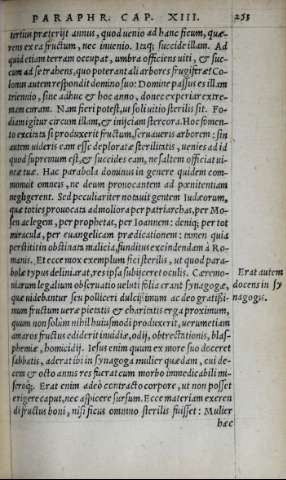 PARAPHR. CAP. XIII. 253
tertius præterijt annus, quod uenio ad hanc ficum, quæ-
rens ex ea fructum, nec inuenio. Itaq; succide illam. Ad
quid etiam terram occupat, umbra officiens uiti, & suc-
cum ad se trahens, quo poterant ali arbores frugiferæ? Co-
lonus autem respondit domino suo: Domine passus es illam
triennio, sine adhuc & hoc anno, donec experiar extre-
mam curam. Nam fieri potest, ut soli uitio sterilis sit. Fo-
diam igitur circum illam, & inijciam stercora. Hoc fomen-
to excitata si produxerit fructum, seruaueris arborem: sin
autem uideris eam esse deploratæ sterilitatis, uenies ad id
quod supremum est, & succides eam, ne saltem officiat ui-
neæ tuæ. Hac parabola dominus in genere quidem com-
monuit omneis, ne deum prouocantem ad pœnitentiam
negligerent. Sed peculiariter notauit gentem Iudæorum,
quæ toties prouocata ad meliora per patriarchas, per Mo-
sen ac legem, per prophetas, per Ioannem: deniq; per tot
miracula, per euangelicam prædicationem: tamen quia
perstitit in obstinata malicia, funditus excindenda à Ro-
manis. Et ecce mox exemplum fici sterilis, ut quod para-
bolæ typus deliniarat, res ipsa subijceret oculis. Cæremo-
niarum legalium obseruatio ueluti folia erant synagogæ,
quæ uidebantur seu polliceri dulcissimum ac deo gratissi-
mum fructum ueræ pietatis & charitatis erga proximum,
quum non solùm nihil huiusmodi produxerit, uerumetiam
amaros fructus ediderit inuidiæ, odij, obtrectationis, blas-
phemiæ, homicidij. Iesus enim quum ex more suo doceret
sabbatis, aderat ibi in synagoga mulier quædam, cui de-
cem & octo annis res fuerat cum morbo immedicabili mi-
seroq́;. Erat enim adeò contracto corpore, ut non posset
erigere caput, nec aspicere sursum. Ecce materiam exeren
di fructus boni, nisi ficus omnino sterilis fuisset: Mulier
hæc
Erat autem
docens in sy
nagogis.